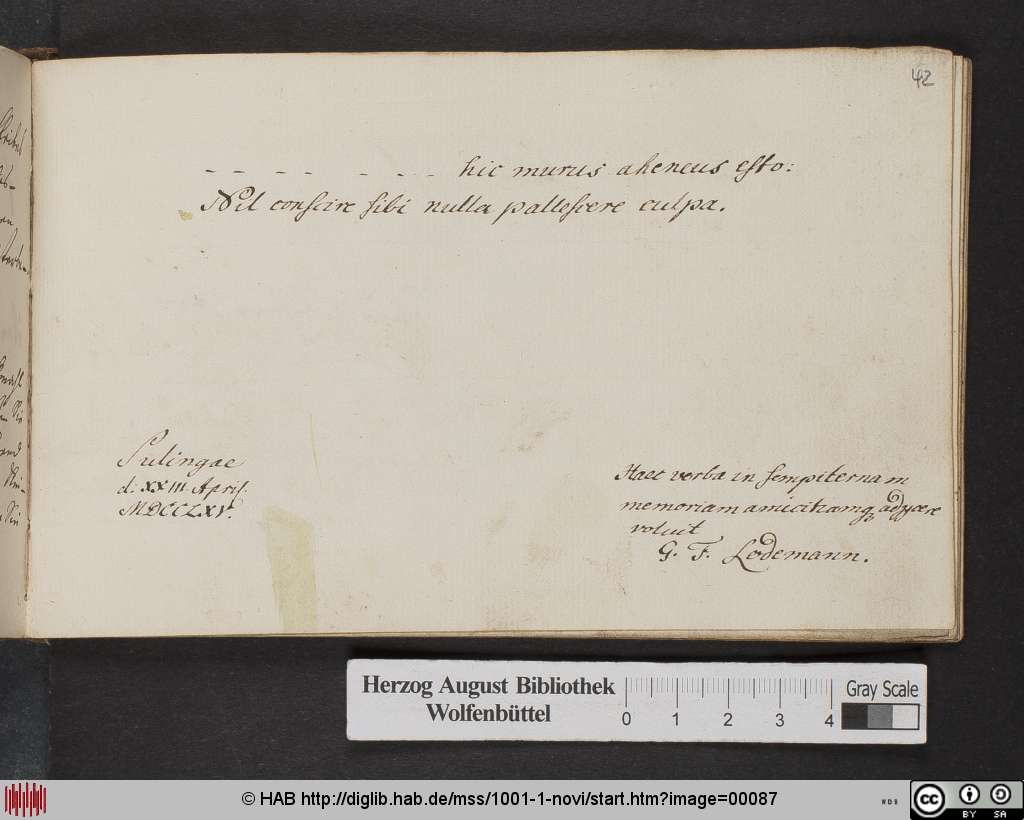 42
- - - - - - - - hic murus aheneus esto:
Nil conscire sibi nulla pallescere culpa.
Sulingae
d. XXIII Apris.
MDCCLXV.
Haec verba in sempiternam
memoriam amicitiamq adijcere
voluit
G. F. Lodemann.
Herzog August Bibliothek
Wolfenbüttel
0 1 2 3 4
Gray Scale
© HAB http://diglib.hab.de/mss/1001-1-novi/start.htm?image=00087
cc BY SA